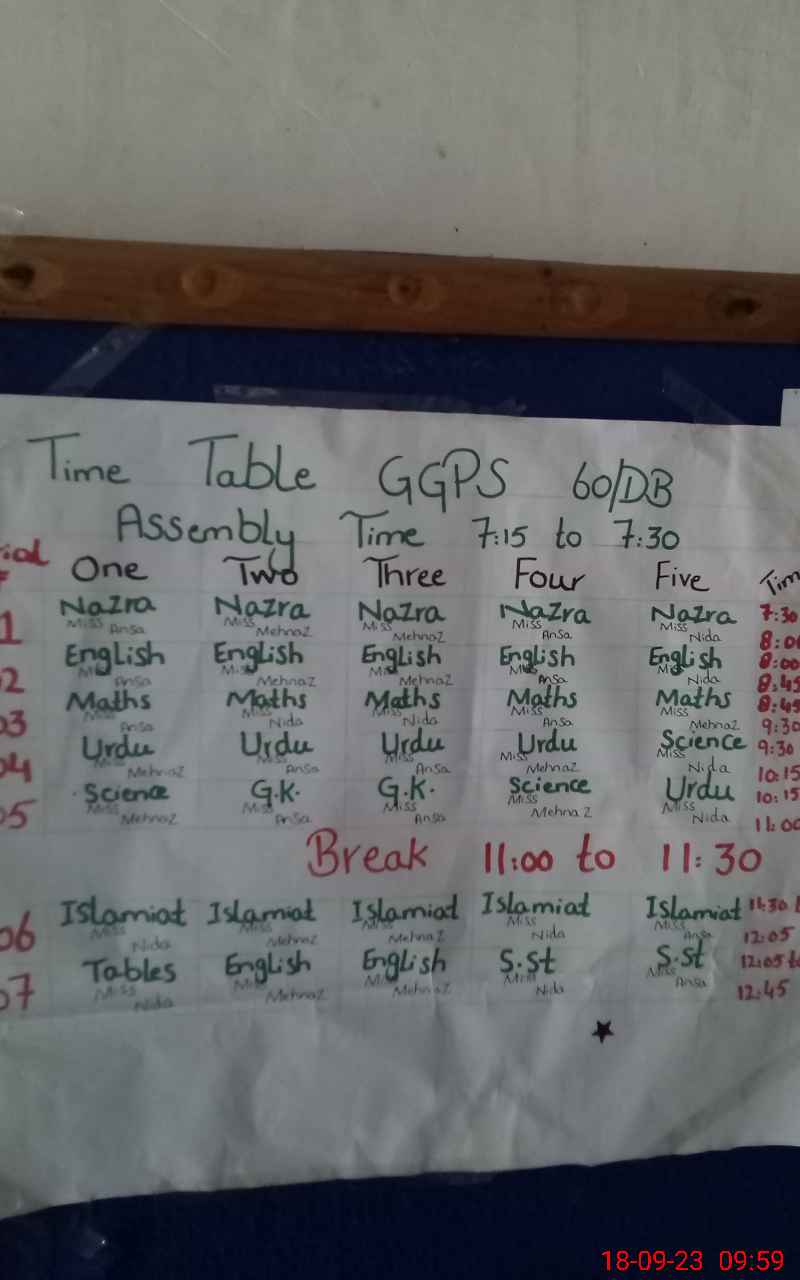 Time Table GGPS 60/DB
Assembly Time 7:15 to 7:30
One Two Three Four Five
1 Nazra Nazra Nazra Nazra Nazra 7:30
Miss Ansa Miss Mehnaz Miss Mehnaz Miss Ansa Miss Nida 8:00
02 English English English English English 8:00
Miss Ansa Miss Mehnaz Miss Mehnaz Miss Ansa Miss Nida 8:45
03 Maths Maths Maths Maths Maths 8:45
Miss Ansa Miss Nida Miss Nida Miss Ansa Miss Mehnaz 9:30
04 Urdu Urdu Urdu Urdu Science 9:30
Miss Mehnaz Miss Ansa Miss Ansa Miss Mehnaz Miss Nida 10:15
05 Science G.K. G.K. Science Urdu 10:15
Miss Mehnaz Miss Ansa Miss Ansa Miss Mehnaz Miss Nida 11:00
Break 11:00 to 11:30
06 Islamiat Islamiat Islamiat Islamiat Islamiat 11:30
Miss Nida Miss Mehnaz Miss Mehnaz Miss Nida Miss Ansa 12:05
07 Tables English English S.St S.St 12:05 to
Miss Nida Miss Mehnaz Miss Mehnaz Miss Nida Miss Ansa 12:45
18-09-23 09:59